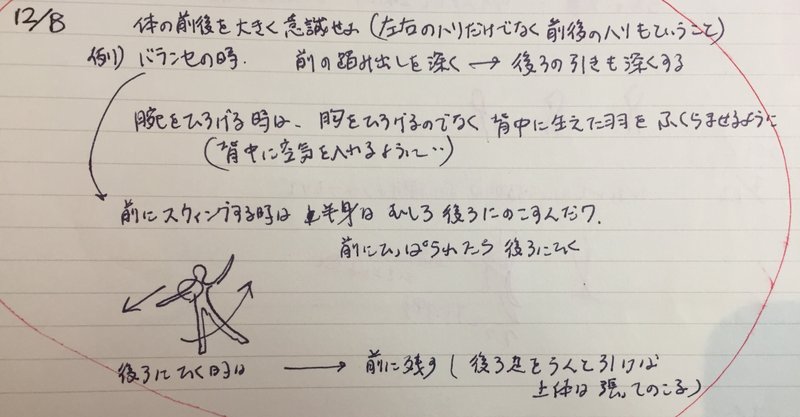 12/8
体の前後を大きく意識せよ(左右のハリだけでなく前後のハリもということ)
例) バランセの時. 前の踏み出しを深く → 後ろの引きも深くする
腕をひろげる時は、胸をひろげるのでなく 背中に生えた羽を ふくらませるように
(背中に空気を入れるように‥)
前にスウィングする時は 上半身は むしろ 後ろにのこすんだワ.
前にひっぱられたら 後ろにひく
後ろにひく時は → 前に残す ( 後ろ足をうんと引けば
上体は 張ってのこる)